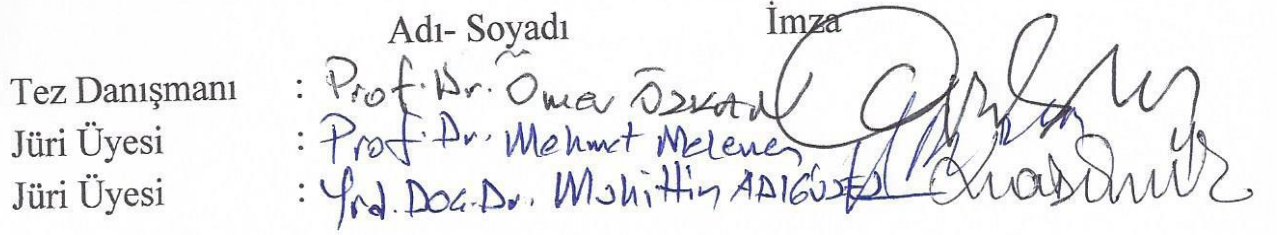 Adı- Soyadı İmza
Tez Danışmanı : Prof. Dr. Ömer Özkan
Jüri Üyesi : Prof. Dr. Mehmet
Jüri Üyesi : Yrd. Doç. Dr. Muhittin ADIGÜZEL